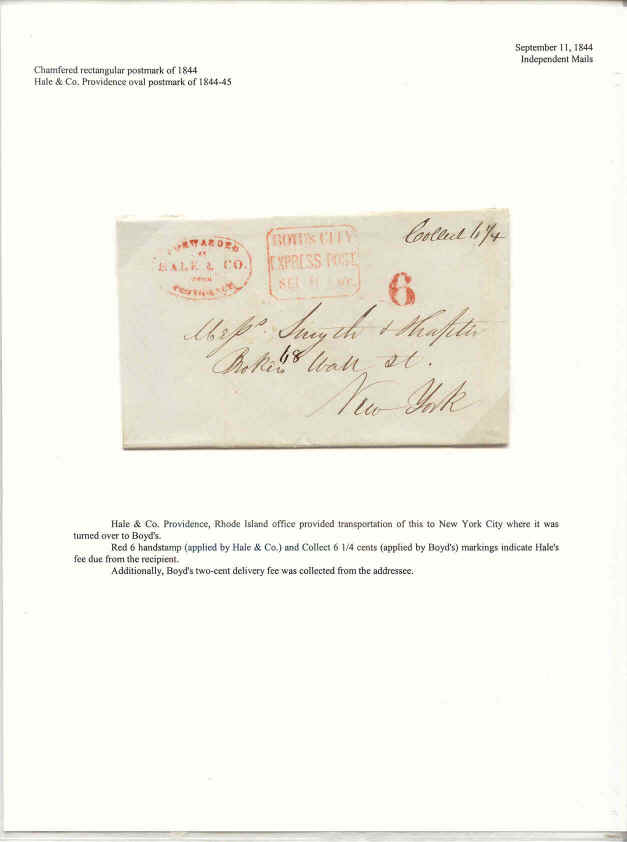 September 11, 1844
Independent Mails
Chamfered rectangular postmark of 1844
Hale & Co. Providence oval postmark of 1844-45
FORWARDED
BY
HALE & CO.
FROM
PROVIDENCE
BOYD'S CITY
EXPRESS POST
SEP 11
Collect 6 1/4
6
Messrs. Smyth &
Brokers 68 Wall St.
New York
Hale & Co. Providence, Rhode Island office provided transportation of this to New York City where it was
turned over to Boyd's.
Red 6 handstamp (applied by Hale & Co.) and Collect 6 1/4 cents (applied by Boyd's) markings indicate Hale's
fee due from the recipient.
Additionally, Boyd's two-cent delivery fee was collected from the addressee.